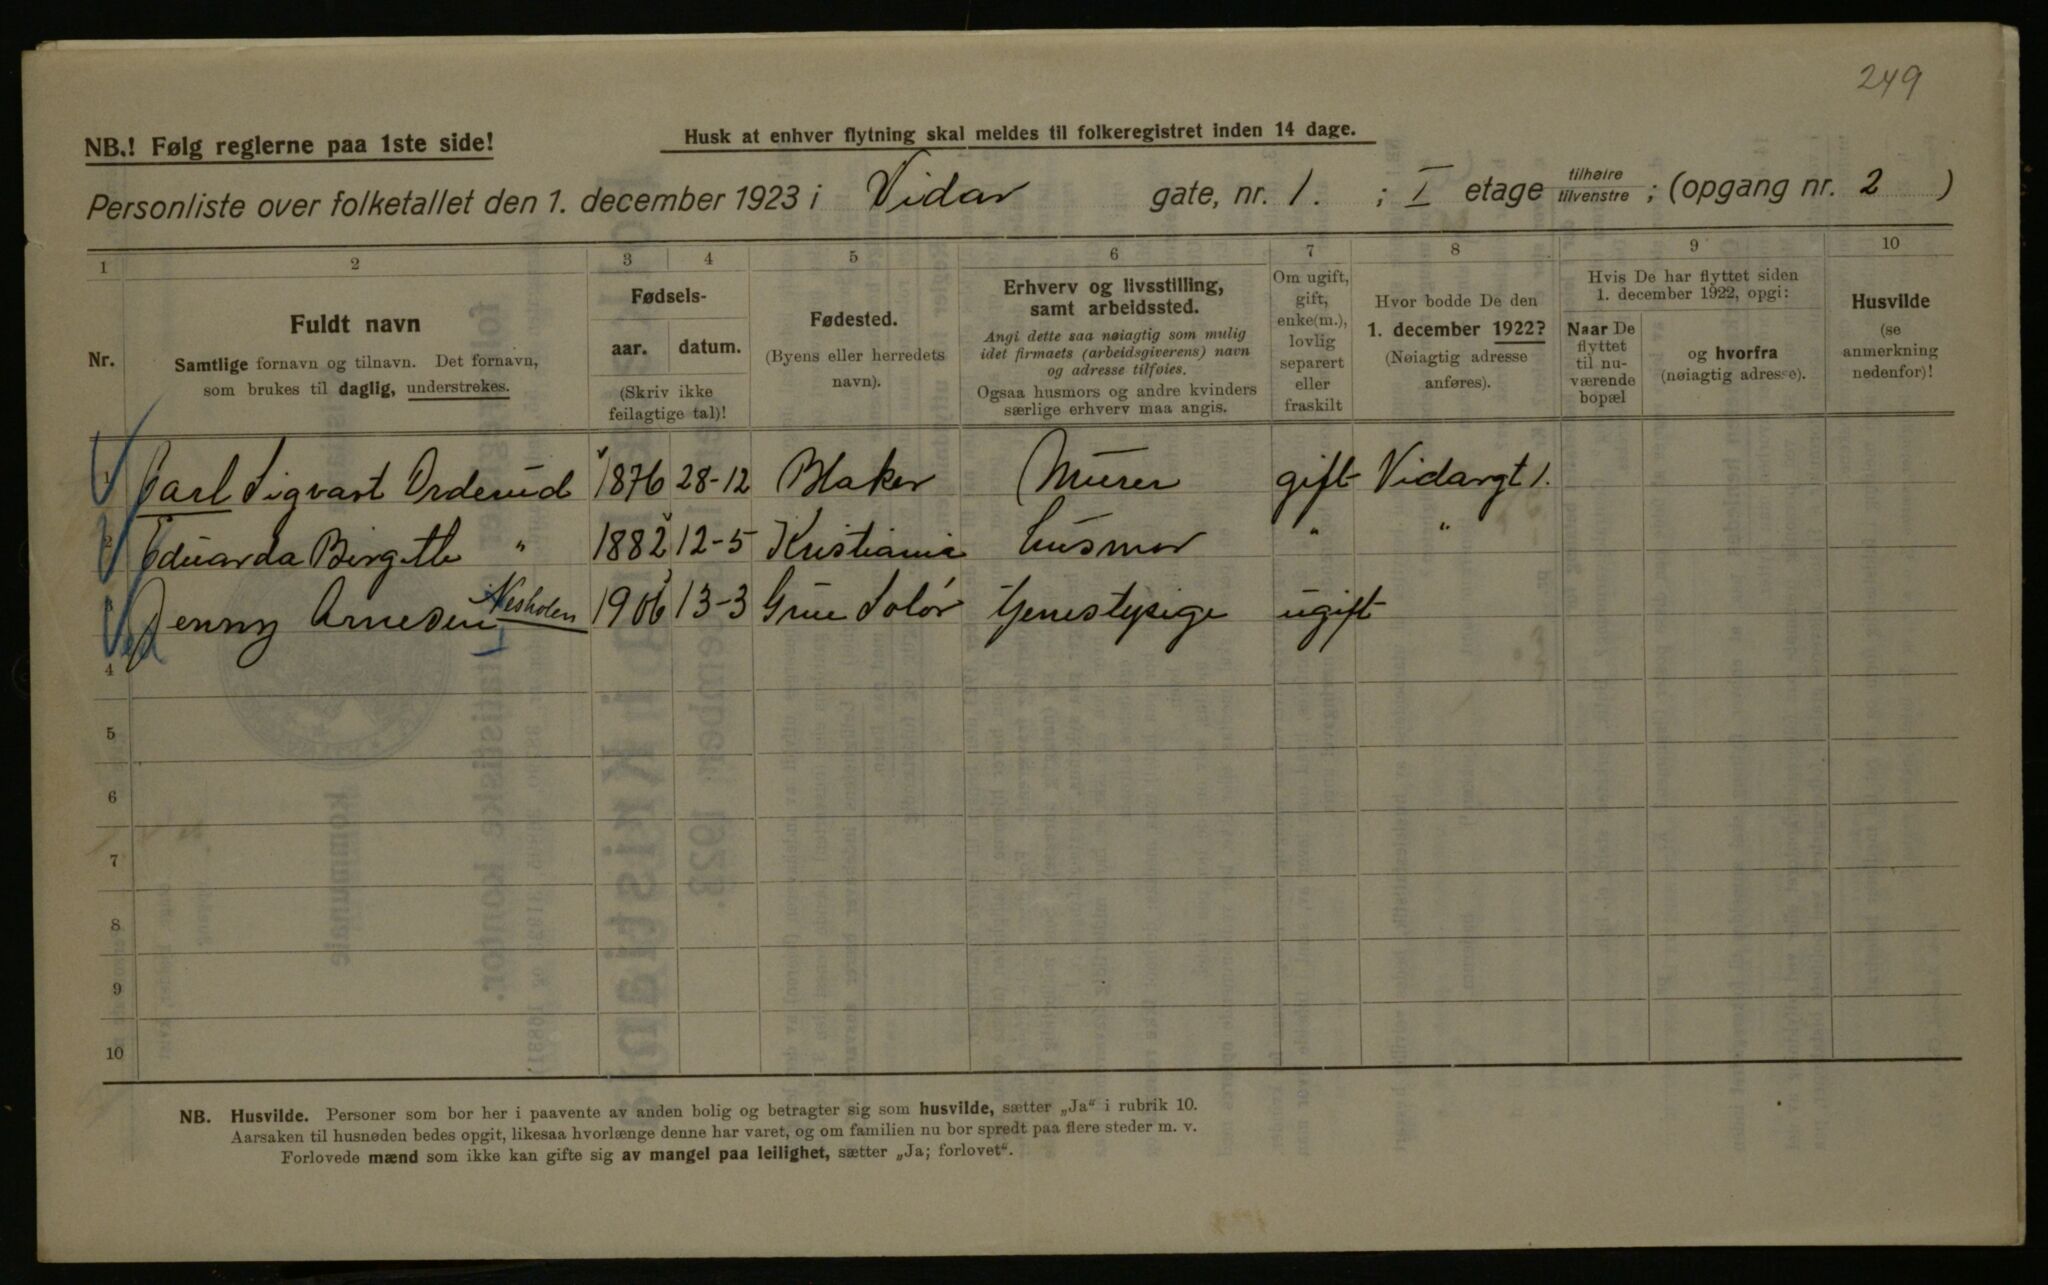 249
NB.! Følg reglerne paa 1ste side!
Husk at enhver flytning skal meldes til folkeregistret inden 14 dage.
Personliste over folketallet den 1. december 1923 i Vidar gate, nr. 1. ; I etage tilhøire tilvenstre ; (opgang nr. 2 )
1 2 3 4 5 6 7 8 9 10
Nr.
Fuldt navn
Samtlige fornavn og tilnavn. Det fornavn,
som brukes til daglig, understrekes.
Fødsels-
aar. datum.
(Skriv ikke
feilagtige tal)!
Fødested.
(Byens eller herredets
navn).
Erhverv og livsstilling,
samt arbeidssted.
Angi dette saa nøiagtig som mulig
idet firmaets (arbeidsgiverens) navn
og adresse tilføies.
Ogsaa husmors og andre kvinders
særlige erhverv maa angis.
Om ugift,
gift,
enke(m.),
lovlig
separert
eller
fraskilt
Hvor bodde De den
1. december 1922?
(Nøiagtig adresse
anføres).
Hvis De har flyttet siden
1. december 1922, opgi:
Naar De
flyttet
til nu-
værende
bopæl
og hvorfra
(nøiagtig adresse).
Husvilde
(se
anmerkning
nedenfor)!
1 Carl Sigvart Orderud 1876 28-12 Blaker Murer gift Vidargt 1.
2 Eduarda Birgitte " 1882 12-5 Kristiania husmor " "
3 Jenny Arnesen Nesholen 1906 13-3 Grue Solør tjenestepige ugift
4
5
6
7
8
9
10
NB. Husvilde. Personer som bor her i paavente av anden bolig og betragter sig som husvilde, sætter „Ja“ i rubrik 10.
Aarsaken til husnøden bedes opgit, likesaa hvorlænge denne har varet, og om familien nu bor spredt paa flere steder m. v.
Forlovede mænd som ikke kan gifte sig av mangel paa leilighet, sætter „Ja; forlovet“.